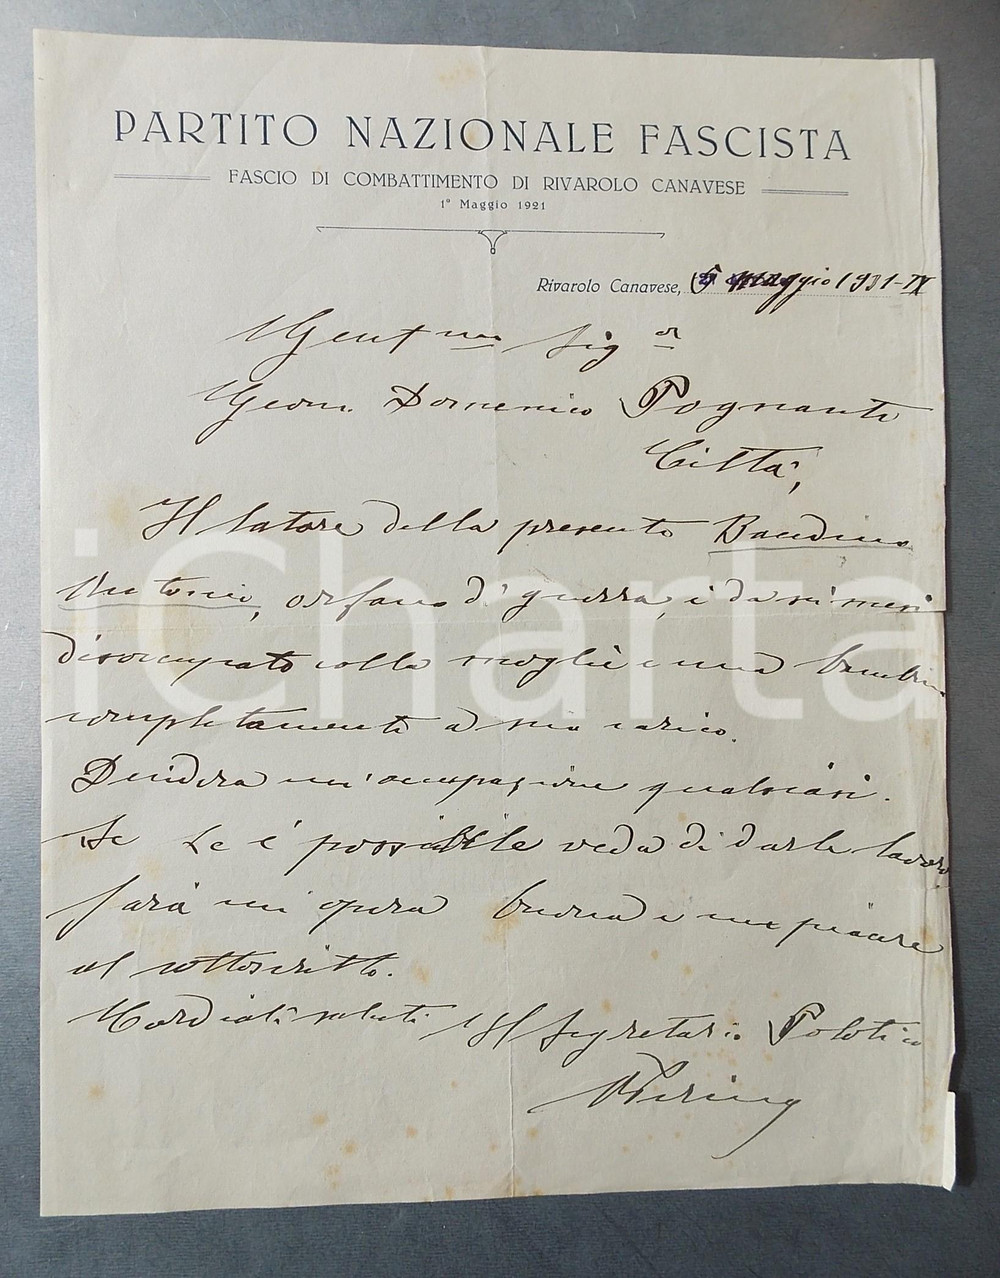 PARTITO NAZIONALE FASCISTA
FASCIO DI COMBATTIMENTO DI RIVAROLO CANAVESE
1° Maggio 1921
Rivarolo Canavese, 5 maggio 1931-IX
Gent mo Sig or
Geom. Domenico Pognante
Città,
Il latore della presente Baudino
Antonio, orfano di guerra, è da sei mesi
disoccupato colla moglie e una bambina
completamente a suo carico.
Desidera un'occupazione qualsiasi.
Se Le è possibile veda di darle lavoro,
farà un'opera buona e un piacere
al sottoscritto.
Cordiali saluti Il Segretario Politico
iCharta